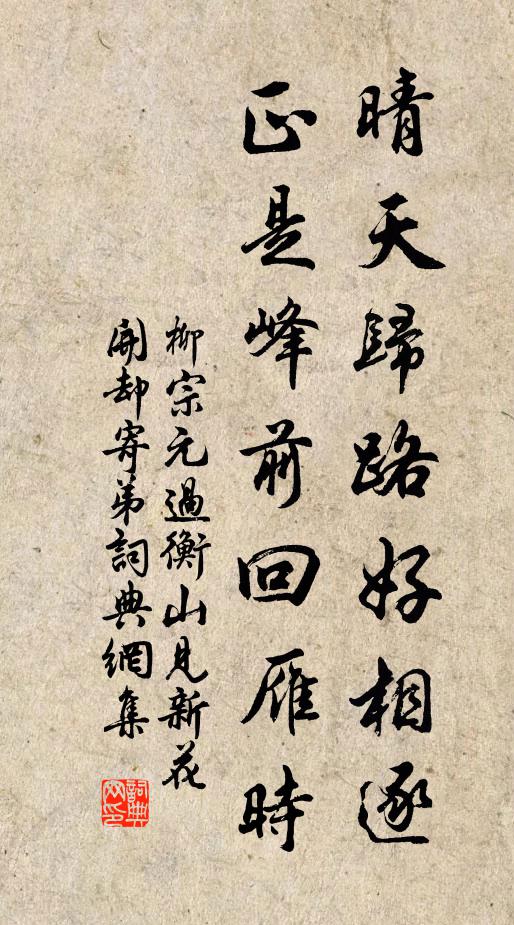 晴天歸路好相逐
正是峰前回雁時
柳宗元過衡山見新花
開却寄弟詞典網集
詞典
网印